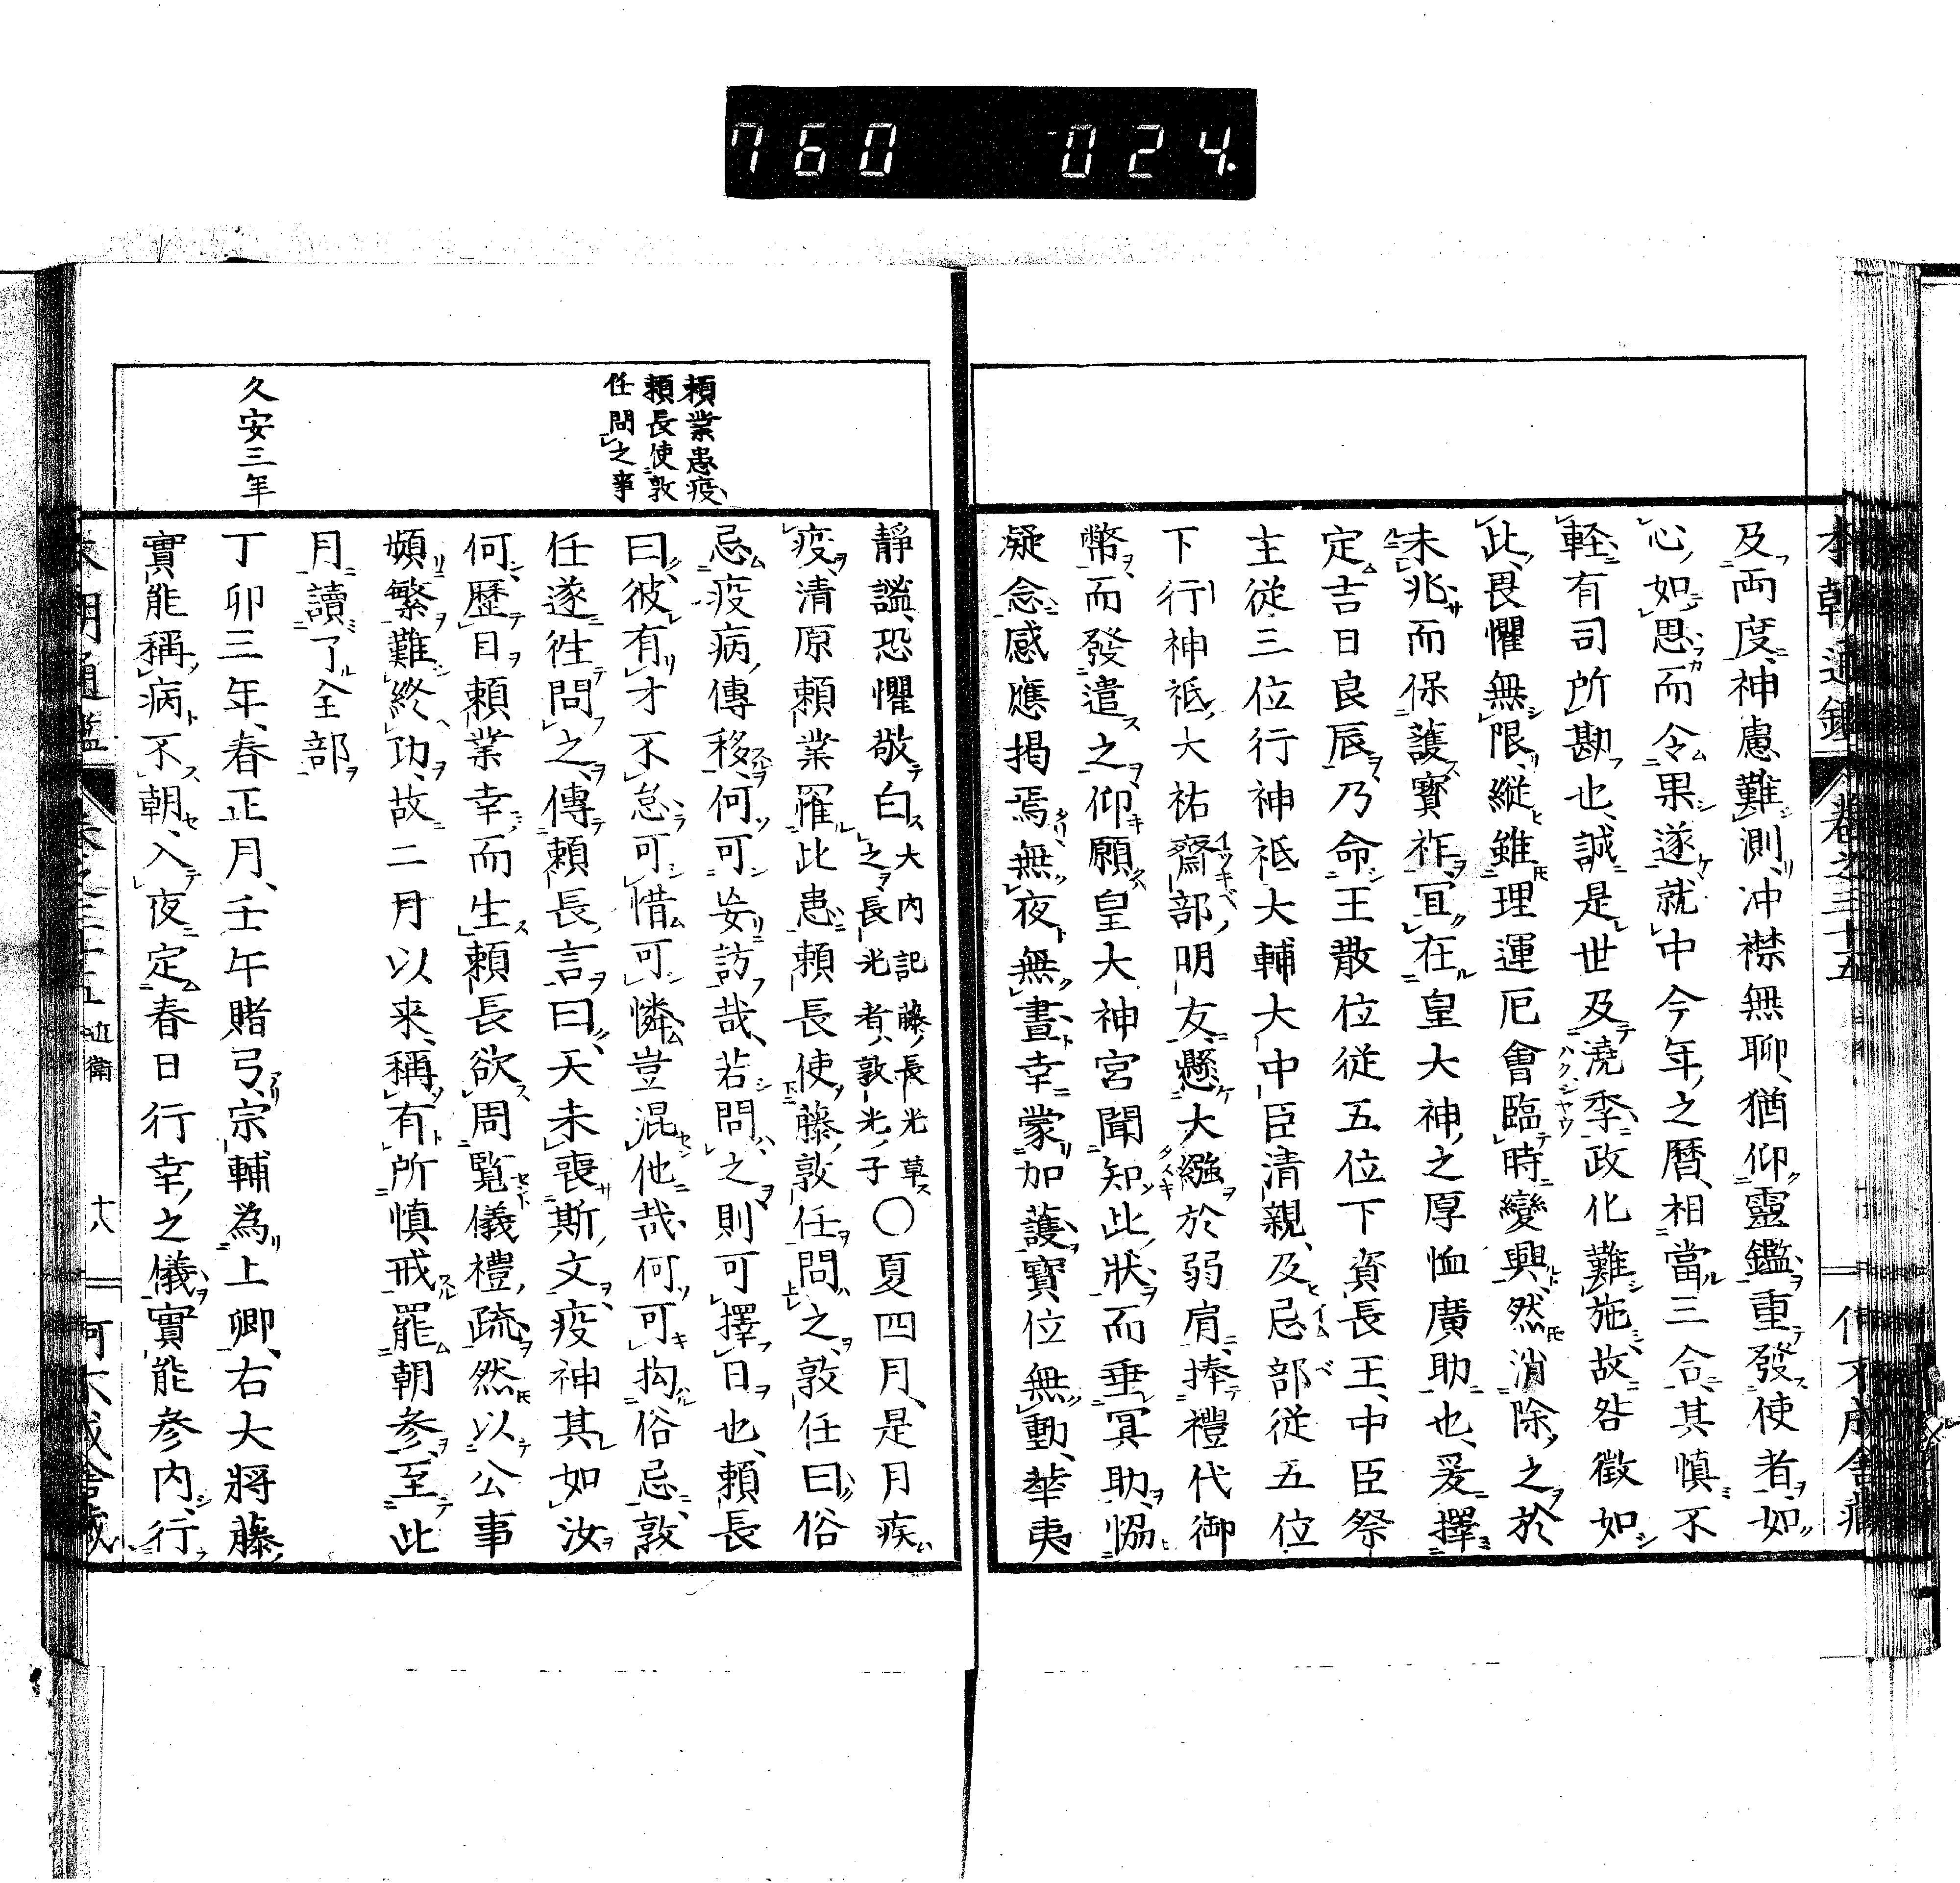 760 024
本朝通鑑 卷之三十五
及両度神慮難測冲襟無聊猶仰靈鑑重發使者如
心如思而令果遂就中今年之暦相當三合其慎不
軽有司所勘也誠是世及澆季政化難施故咎徴如
此畏懼無限縦雖理運厄會臨時變興然消除之於
未兆而保護寳祚冝在皇大神之厚恤廣助也爰擇
定吉日良辰乃命王散位従五位下資長王中臣祭
主従三位行神祗大輔大中臣清親及忌部従五位
下行神祗大祐齋部明友懸大繦於弱肩捧禮代御
幣而發遣之仰願皇大神宮聞知此状而垂冥助恊
凝念感應掲焉無夜無晝幸蒙加護寳位無動華夷
頼業患疫
頼長使敦
任問之事
久安三年
靜謐恐懼敬白大内記藤長光草之長光者敦光子〇夏四月是月疾
疫清原頼業罹此患頼長使藤敦任問之敦任曰俗
忌疫病傳移何可妄訪哉若問之則可擇日也頼長
曰彼有才不怠可惜可憐豈混他哉何可拘俗忌敦
任遂徃問之傳頼長言曰天未喪斯文疫神其如汝
何歴日頼業幸而生頼長欲周覧儀禮疏然以公事
頻繁難終功故二月以来稱有所慎戒罷朝参至此
月讀了全部
丁卯三年春正月壬午賭弓宗輔為上卿右大将藤
實能稱病不朝入夜定春日行幸之儀實能参内行
近衛 十八